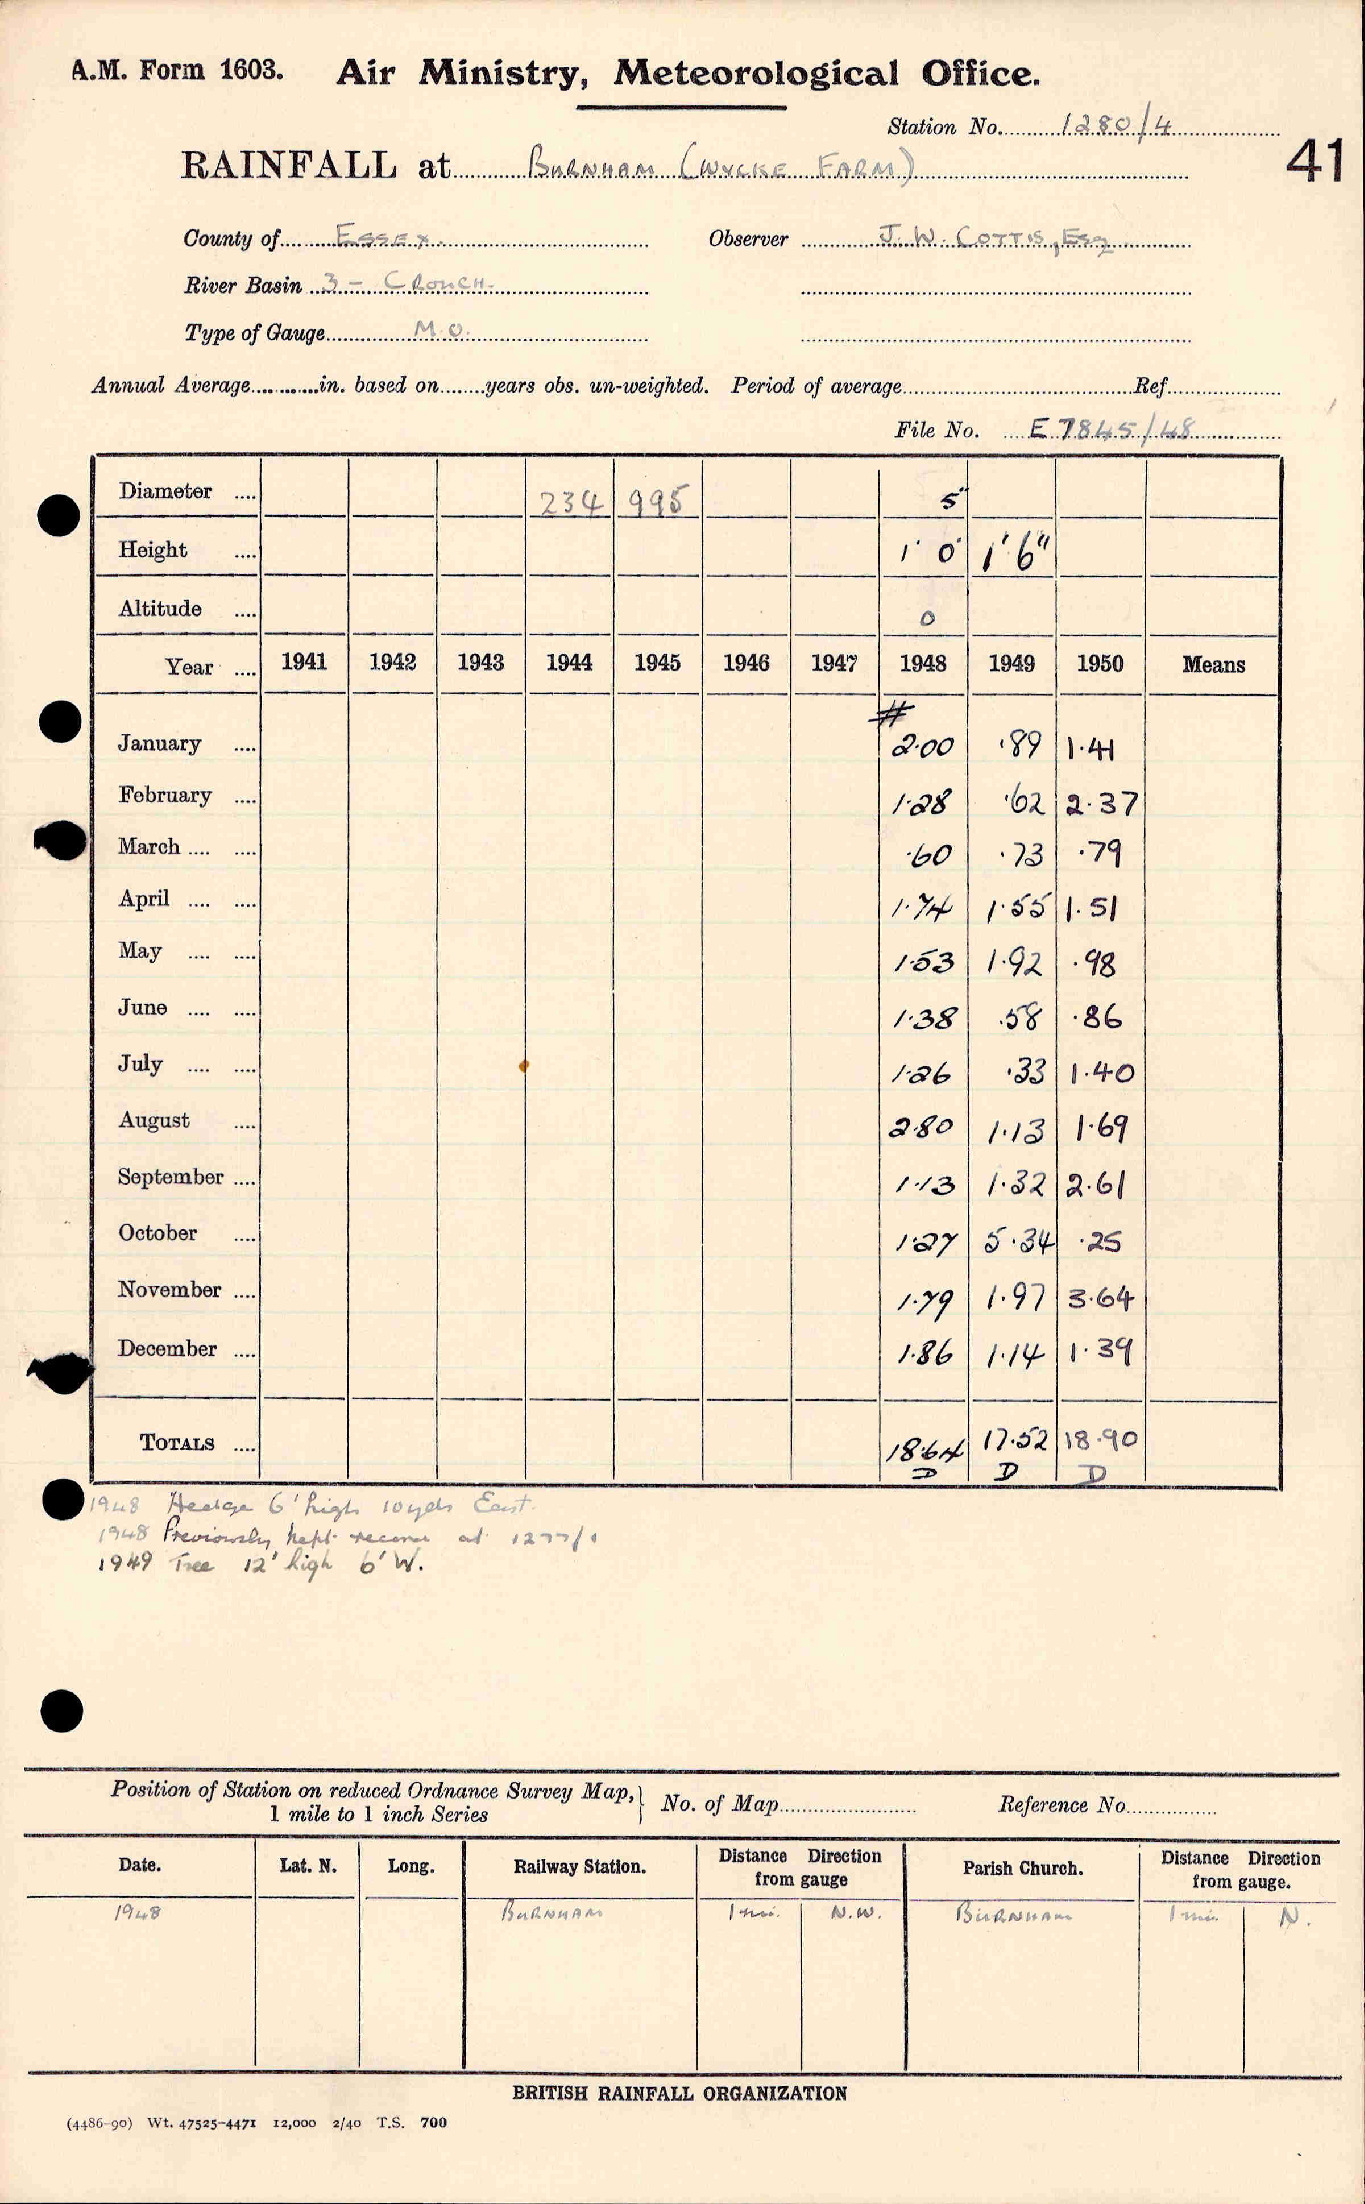 A.M. Form 1603. Air Ministry, Meteorological Office.
Station No. 1280/4
41
RAINFALL at BURNHAM (WYCKE FARM)
County of ESSEX. Observer J. W. COTTIS, Esq
River Basin 3 - CROUCH.
Type of Gauge M.O.
Annual Average in. based on years obs. un-weighted. Period of average Ref.
File No. E 7845/48
Diameter 234 995 5"
Height 1' 0" 1' 6"
Altitude 0
Year 1941 1942 1943 1944 1945 1946 1947 1948 1949 1950 Means
#
January 2.00 .89 1.41
February 1.28 .62 2.37
March .60 .73 .79
April 1.74 1.55 1.51
May 1.53 1.92 .98
June 1.38 .58 .86
July 1.26 .33 1.40
August 2.80 1.13 1.69
September 1.13 1.32 2.61
October 1.27 5.34 .25
November 1.79 1.97 3.64
December 1.86 1.14 1.39
TOTALS 18.64 17.52 18.90
D D D
1948 Hedge 6' high 10 yds East.
1948 Previously kept record at 1277/1
1949 Tree 12' high 6' W.
Position of Station on reduced Ordnance Survey Map, 1 mile to 1 inch Series } No. of Map Reference No.
Date. Lat. N. Long. Railway Station. Distance Direction from gauge Parish Church. Distance Direction from gauge.
1948 BURNHAM 1 mi. N.W. BURNHAM 1 mi. N.
BRITISH RAINFALL ORGANIZATION
(4486-90) Wt. 47525-4471 12,000 2/40 T.S. 700